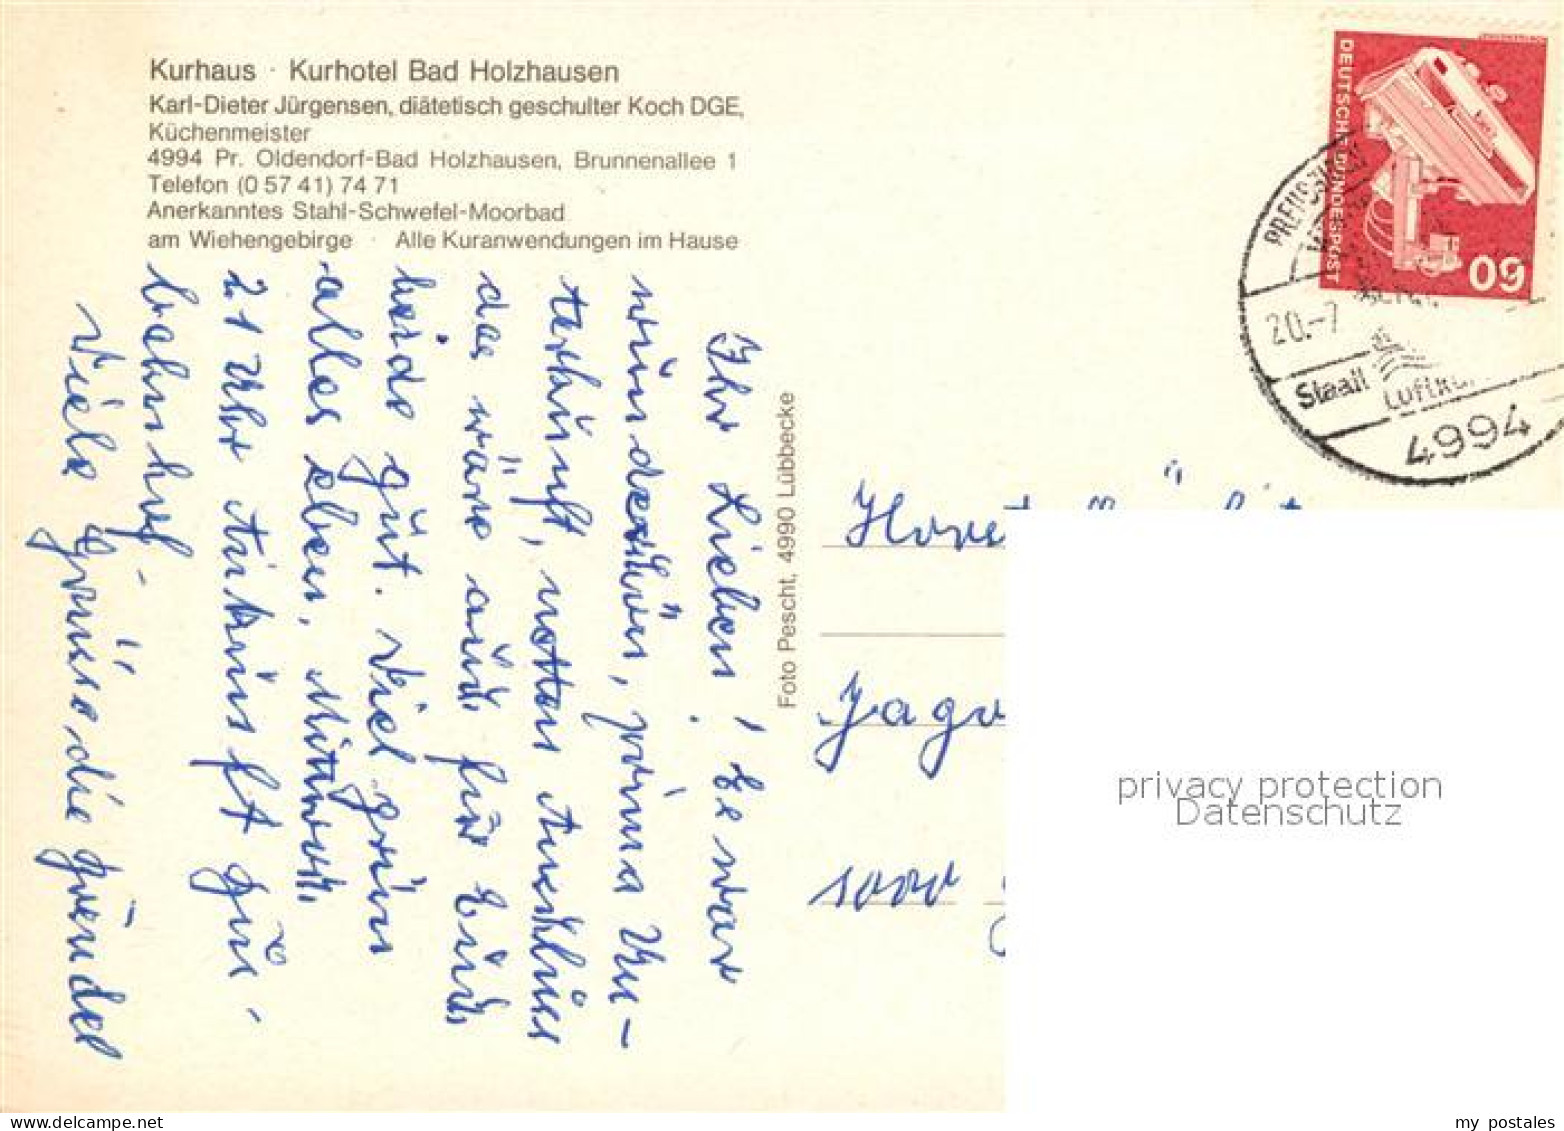 Kurhaus · Kurhotel Bad Holzhausen
Karl-Dieter Jürgensen, diätetisch geschulter Koch DGE,
Küchenmeister
4994 Pr. Oldendorf-Bad Holzhausen, Brunnenallee 1
Telefon (0 57 41) 74 71
Anerkanntes Stahl-Schwefel-Moorbad
am Wiehengebirge · Alle Kuranwendungen im Hause
Ihr Lieben! Es war
wunderschön, prima Un-
terkunft, netten Anschluss
das wäre auch für Euch
beide gut. Viel grün
alles eben, Mittwoch
21 Uhr Ankunft Gü-
bahnhof.
Viele Grüsse die
Foto Pescht, 4990 Lübbecke
DEUTSCHE BUNDESPOST
60
20.-7
Staatl
4994
Horst
Jago
1000
privacy protection
Datenschutz
my postales